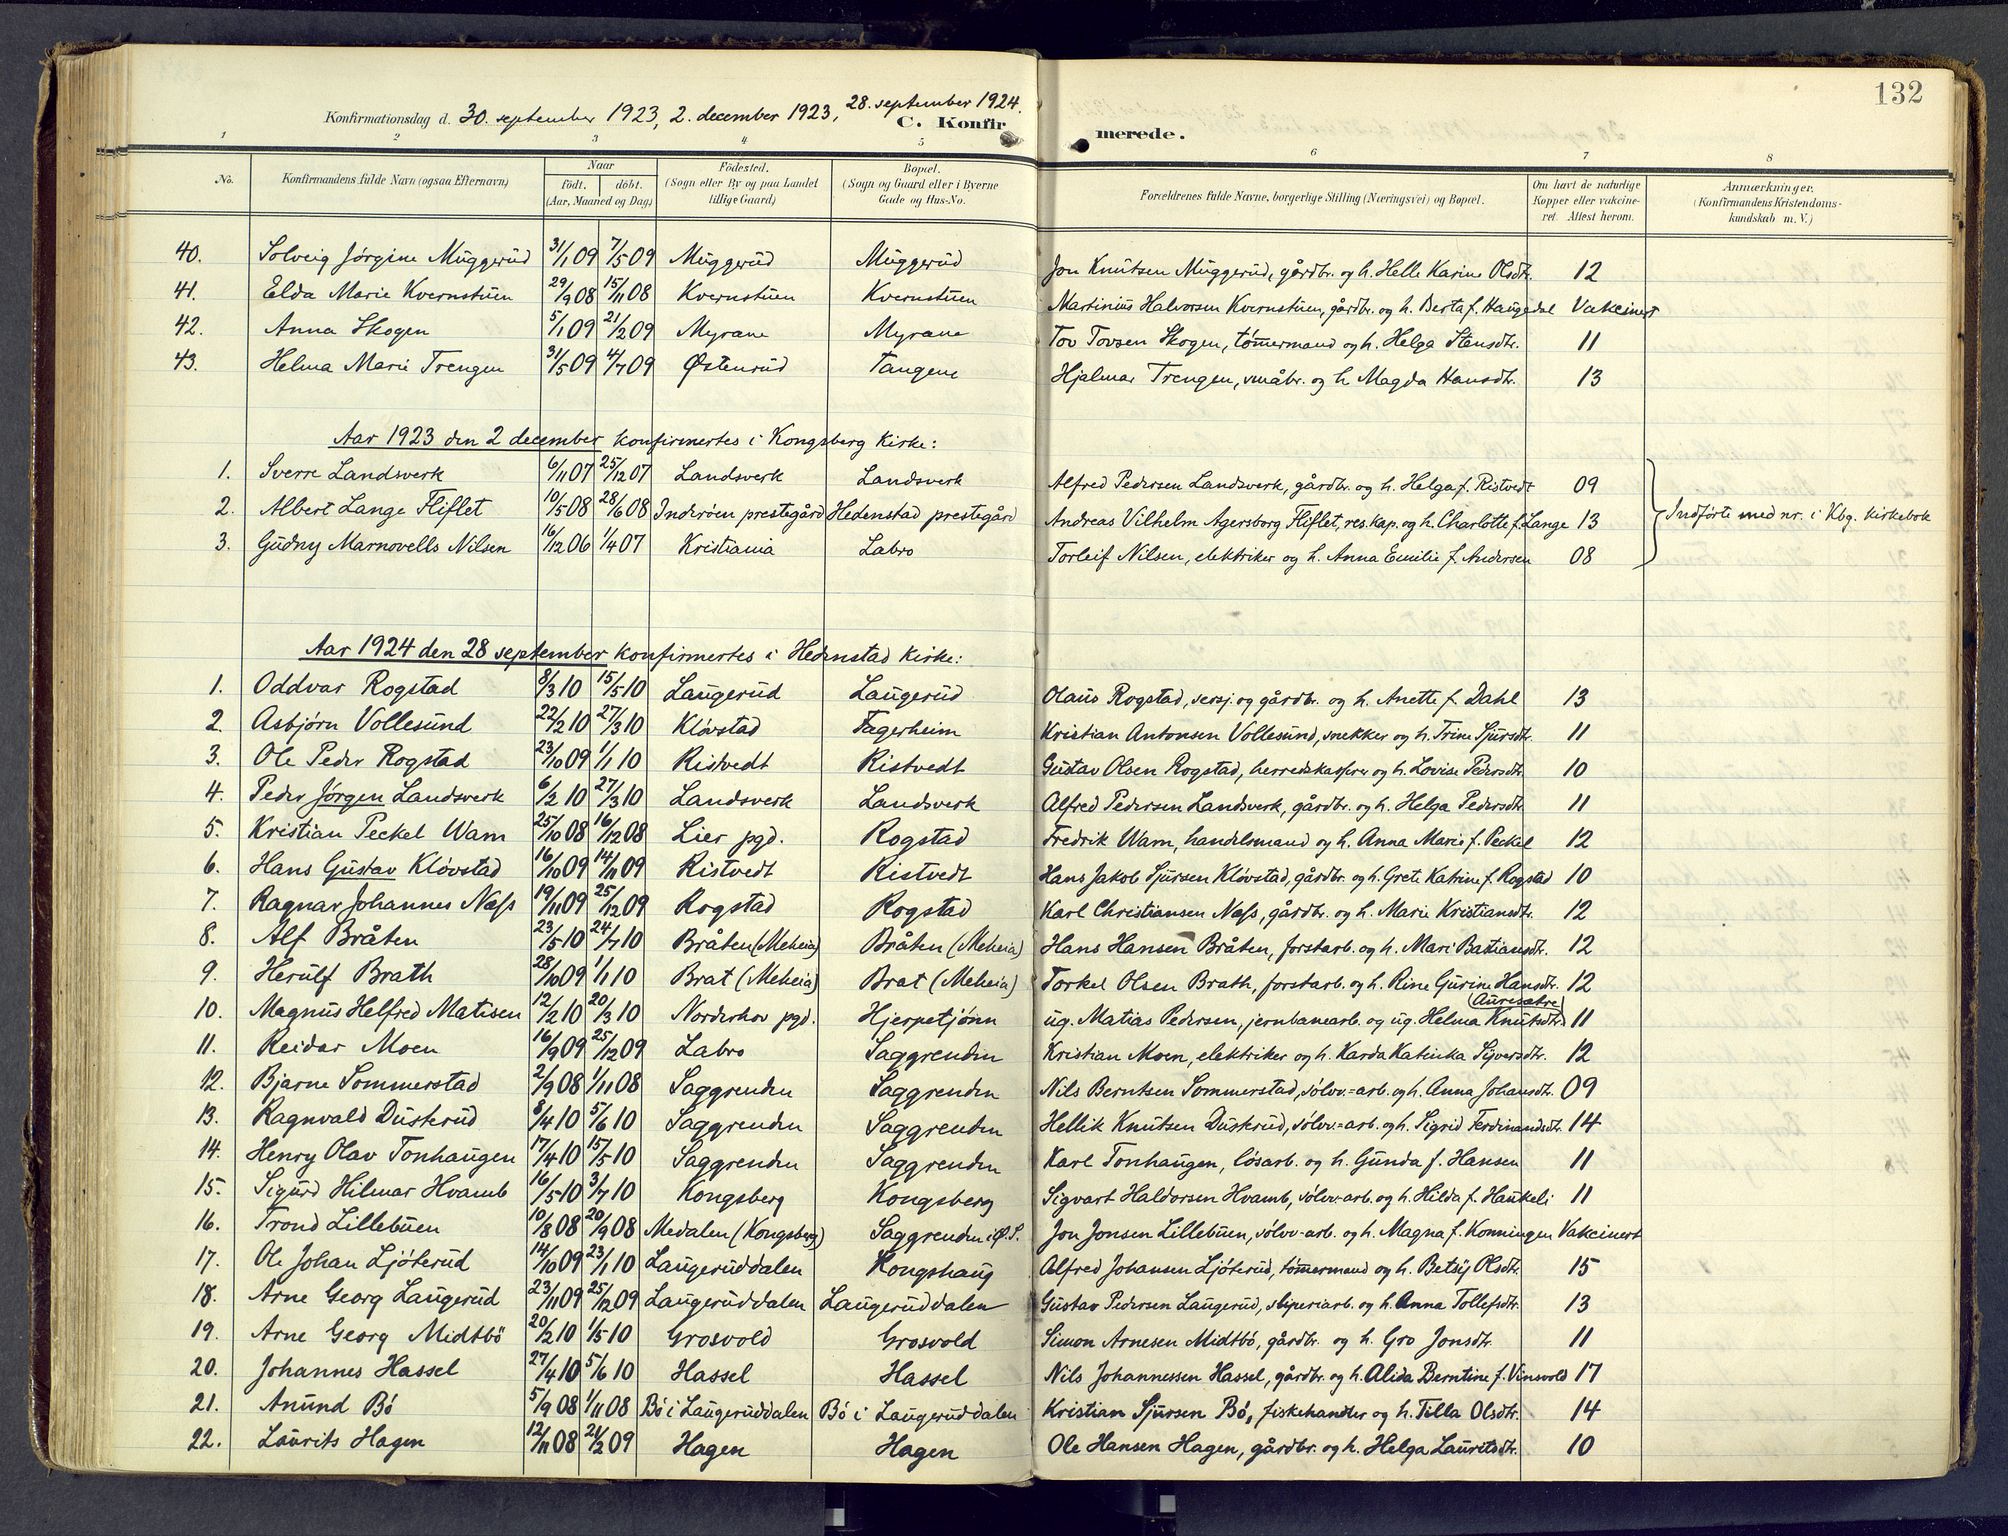 132
28. september 1924.
Konfirmationsdag d. 30. september 1923, 2. december 1923,
C. Konfirmerede.
1 2 3 4 5 6 7 8
No. Konfirmandens fulde Navn (ogsaa Efternavn) Naar födt. döbt. (Aar, Maaned og Dag) Födested. (Sogn eller By og paa Landet tillige Gaard) Bopæl. (Sogn og Gaard eller i Byerne Gade og Hus-No. Forældrenes fulde Navne, borgerlige Stilling (Næringsvei) og Bopæl. Om havt de naturlige Kopper eller vakcineret. Attest herom. Anmærkninger. (Konfirmandens Kristendomskundskab m. V.)
40. Solveig Jørgine Muggerud 31/1 09 7/5 09 Muggerud Muggerud Jon Knutsen Muggerud, gårdbr. og h. Helle Karine Olsdtr. 12
41. Elda Marie Kvernstuen 29/9 08 15/11 08 Kvernstuen Kvernstuen Martinius Halvorsen Kvernstuen, gårdbr. og h. Berta f. Haugedal Vakcinert
42. Anna Skogen 5/1 09 21/2 09 Myrane Myrane Tov Tovsen Skogen, tømmermand og h. Helga Stensdtr. 11
43. Helma Marie Trengen 31/5 09 4/7 09 Østenrud Tangene Hjalmar Trengen, småbr. og h Magda Hansdtr. 13
Aar 1923 den 2 december konfirmertes i Kongsberg Kirke:
1. Sverre Landsverk 6/11 07 25/12 07 Landsverk Landsverk Alfred Pedersen Landsverk, gårdbr. og h. Helga f. Ristvedt 09
2. Albert Lange Fliflet 10/5 08 28/6 08 Inderøen prestegård Hedenstad prestegård Andreas Vilhelm Agersborg Fliflet, res. kap. og h. Charlotte f. Lange 13 Indførte med nr. i Kbg. kirkebok
3. Gudny Marnovells Nilsen 16/12 06 1/4 07 Kristiania Labro Torleif Nilsen, elektriker og h. Anna Emilie f. Andersen 08
Aar 1924 den 28 september konfirmertes i Hedenstad Kirke:
1. Oddvar Rogstad 8/3 10 15/5 10 Laugerud Laugerud Olaus Rogstad, sersj. og gårdbr. og h. Anette f. Dahl 13
2. Asbjørn Vollesund 22/2 10 27/3 10 Kløvstad Fagerheim Kristian Antonsen Vollesund, snekker og h. Trine Sjursdtr. 11
3. Ole Peder Rogstad 23/10 09 1/1 10 Ristvedt Ristvedt Gustav Olsen Rogstad, herredskasserer og h. Lovise Pedersdtr. 10
4. Peder Jørgen Landsverk 6/2 10 27/3 10 Landsverk Landsverk Alfred Pedersen Landsverk, gårdbr. og h. Helga Pedersdtr. 11
5. Kristian Peckel Wam 25/10 08 16/12 08 Lier pgd. Rogstad Fredrik Wam, handelsmand og h. Anna Marie f. Peckel 12
6. Hans Gustav Kløvstad 16/10 09 14/11 09 Ristvedt Ristvedt Hans Jakob Sjursen Kløvstad, gårdbr. og h. Grete Katrine f. Rogstad 10
7. Ragnar Johannes Næss 19/11 09 25/12 09 Rogstad Rogstad Karl Christiansen Næss, gårdbr. og h. Marie Kristiansdtr. 12
8. Alf Bråten 23/5 10 24/7 10 Bråten (Meheia) Bråten (Meheia) Hans Hansen Bråten, forstarb. og h. Mari Bastiansdtr. 12
9. Herulf Brath 28/10 09 1/1 10 Brat (Meheia) Brat (Meheia) Torkel Olsen Brath, forstarb. og h. Rine Gurine Hansdtr. 12
10. Magnus Helfred Matisen 12/2 10 20/3 10 Norderhov pgd. Hjerpetjønn ug. Matias Pedersen, jernbanearb. og ug. Helma Knutsdtr. (Auresætre) 11
11. Reidar Moen 16/9 09 25/12 09 Labro Saggrenden Kristian Moen, elektriker og h. Karda Katinka Syversdtr. 12
12. Bjarne Sommerstad 2/9 08 1/11 08 Saggrenden Saggrenden Nils Berntsen Sommerstad, sølvv.=arb. og h. Anna Johansdtr. 09
13. Ragnvald Duskrud 8/4 10 5/6 10 Saggrenden Saggrenden Hellik Knutsen Duskrud, sølvv.=arb. og h. Sigrid Ferdinandsdtr. 14
14. Henry Olav Tonhaugen 17/4 10 15/5 10 Saggrenden Saggrenden Karl Tonhaugen, løsarb. og h. Gunda f. Hansen 11
15. Sigurd Hilmar Hvamb 16/5 10 3/7 10 Kongsberg Kongsberg Sigvart Haldorsen Hvamb, sølvv-arb. og h. Hilda f. Haukeli 11
16. Trond Lillebuen 10/8 08 20/9 08 Medalen (Kongsberg) Saggrenden i Ø.S. Jon Jonsen Lillebuen, sølvv-arb. og h. Magna f. Konningen Vakcinert
17. Ole Johan Ljøterud 14/10 09 23/1 10 Laugeruddalen Kongshaug Alfred Johansen Ljøterud, tømmermand og h. Betsy Olsdtr. 15
18. Arne Georg Laugerud 23/11 09 25/12 09 Laugeruddalen Laugeruddalen Gustav Pedersen Laugerud, sliperiarb. og h. Anna Tollefsdtr. 13
19. Arne Georg Midtbö 20/2 10 1/5 10 Grosvold Grosvold Simon Arnesen Midtbö, gårdbr. og h. Gro Jonsdtr. 11
20. Johannes Hassel 27/4 10 5/6 10 Hassel Hassel Nils Johannessen Hassel, gårdbr. og h. Alida Berntine f. Vinsvold 17
21. Anund Bö 5/9 08 1/11 08 Bö i Laugeruddalen Bö i Laugeruddalen Kristian Sjursen Bö, fiskehandler og h. Tilla Olsdtr. 14
22. Laurits Hagen 12/11 08 21/2 09 Hagen Hagen Ole Hansen Hagen, gårdbr. og h. Helga Lauritsdtr. 10